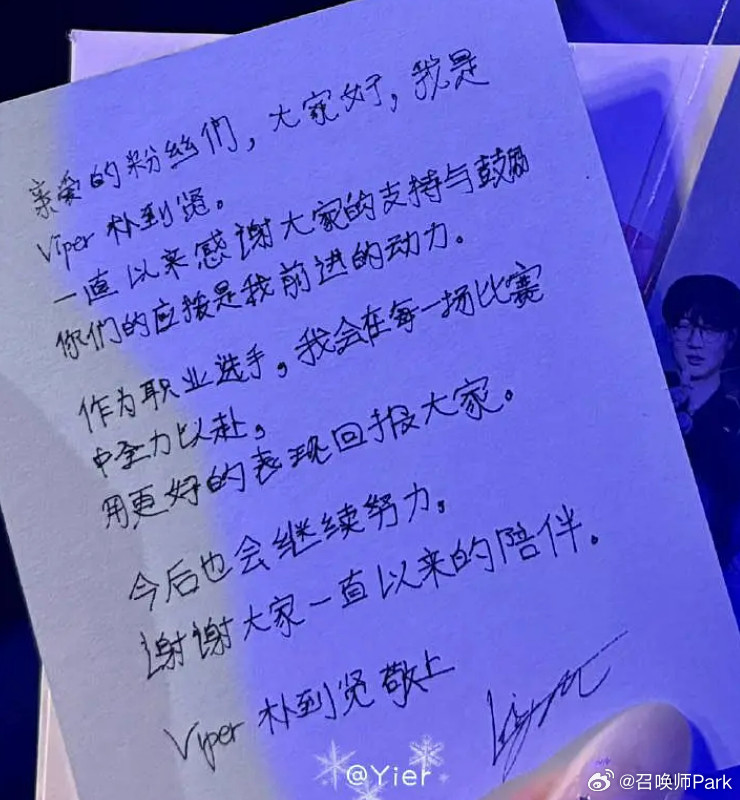 亲爱的粉丝们，大家好，我是
Viper 朴到贤。
一直以来感谢大家的支持与鼓励
你们的应援是我前进的动力。
作为职业选手，我会在每一场比赛
中全力以赴，
用更好的表现回报大家。
今后也会继续努力。
谢谢大家一直以来的陪伴。
Viper 朴到贤 敬上
@Yier
@召唤师Park